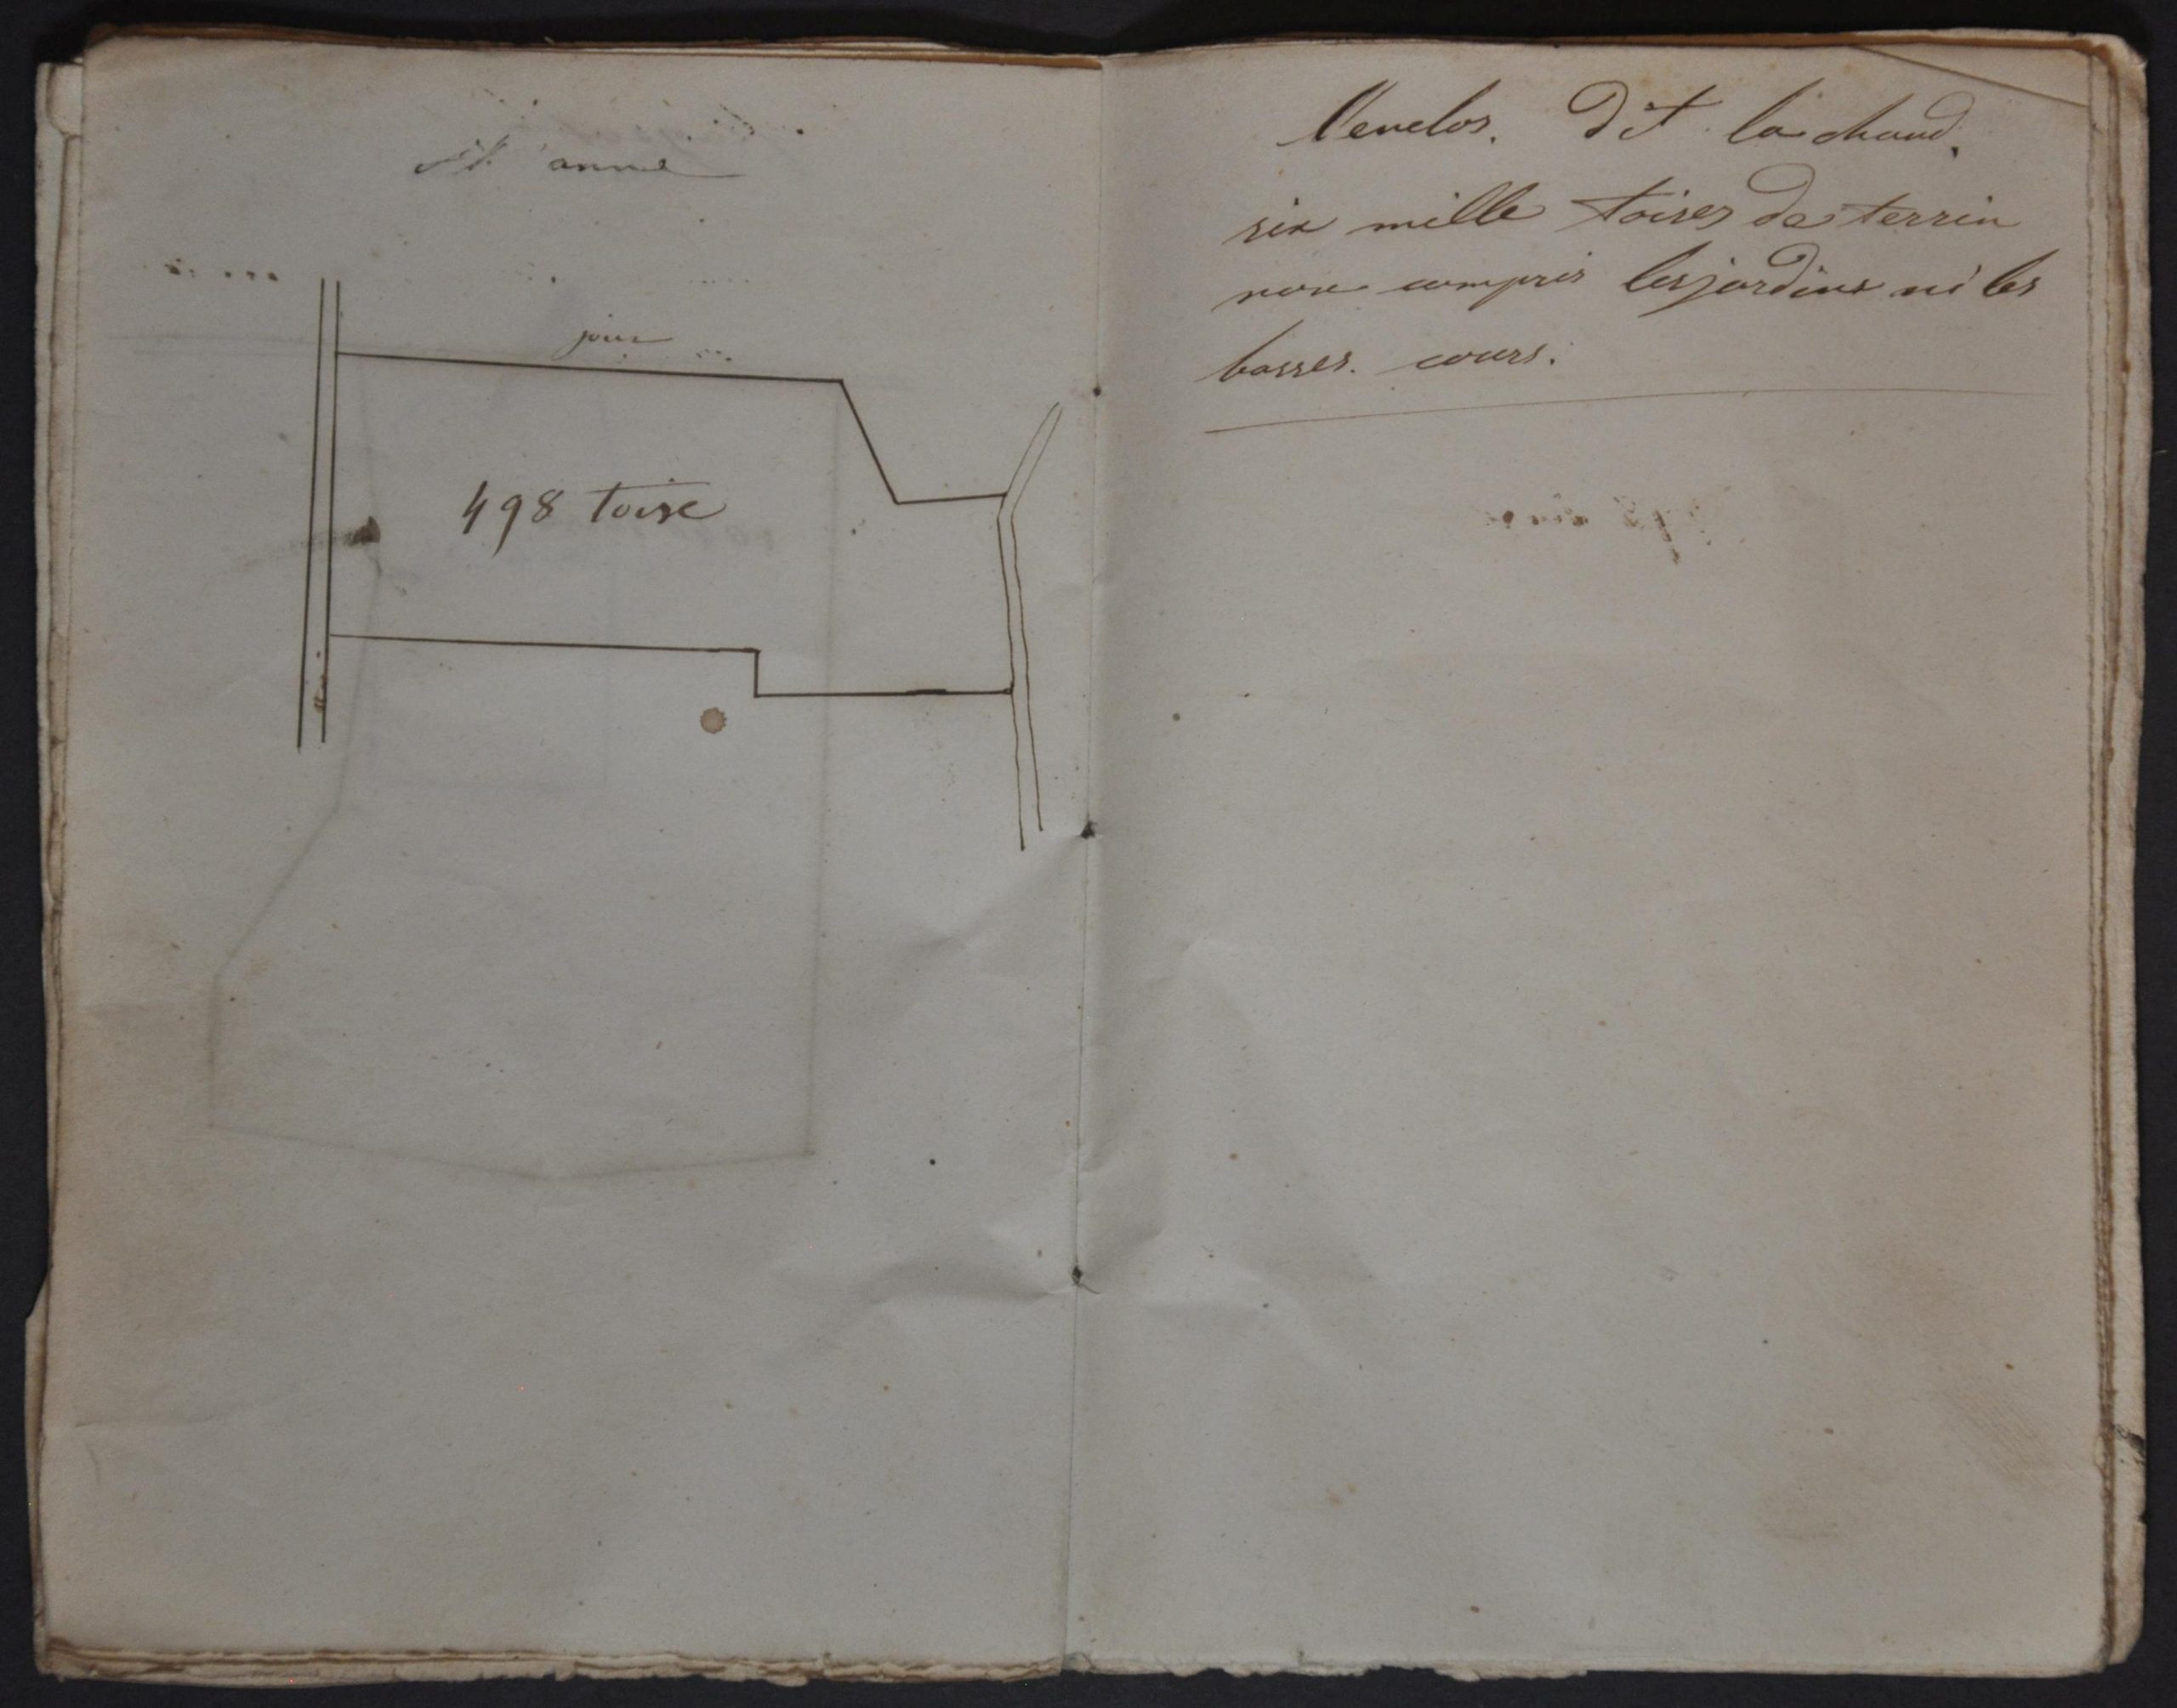 St anne
jour
498 toise
l'enclos. dit la chaud.
six mille toises de terrin
non compris les jardins ni les
basses. cours.